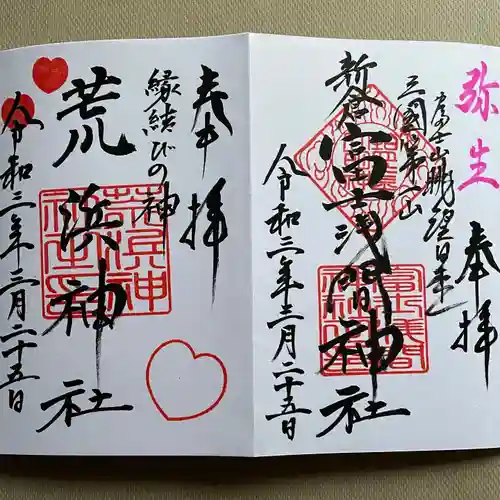 弥生
奉拝
富士山眺望日本一
三国第一山
新倉富士浅間神社
令和三年三月二十五日
奉拝
縁結びの神
荒浜神社
令和三年三月二十五日
荒浜神社之印